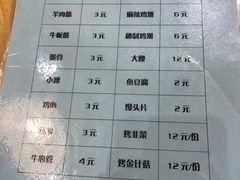 羊肉筋 3元 麻辣鸡爪 6元
牛板筋 3元 秘制鸡爪 6元
脆骨 3元 大腰 12元
小腰 3元 鱼豆腐 2元
鸡心 3元 馒头片 2元
3元 烤韭菜 12元/份
牛心管 4元 烤金针菇 12元/份